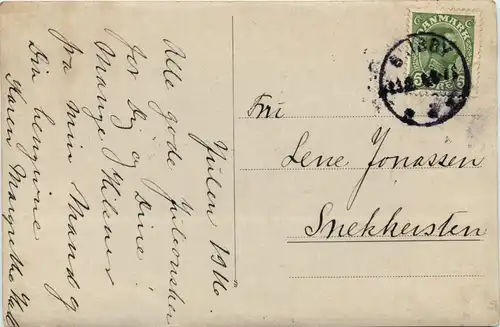 Julen 1916.
Alle gode Juleønsker
for Dig og Dine!
Mange Hilsner
fra min Mand og
Din hengivne
Karen Margrethe
DANMARK
5
Fru
Lene Jonassen
Snekkersten